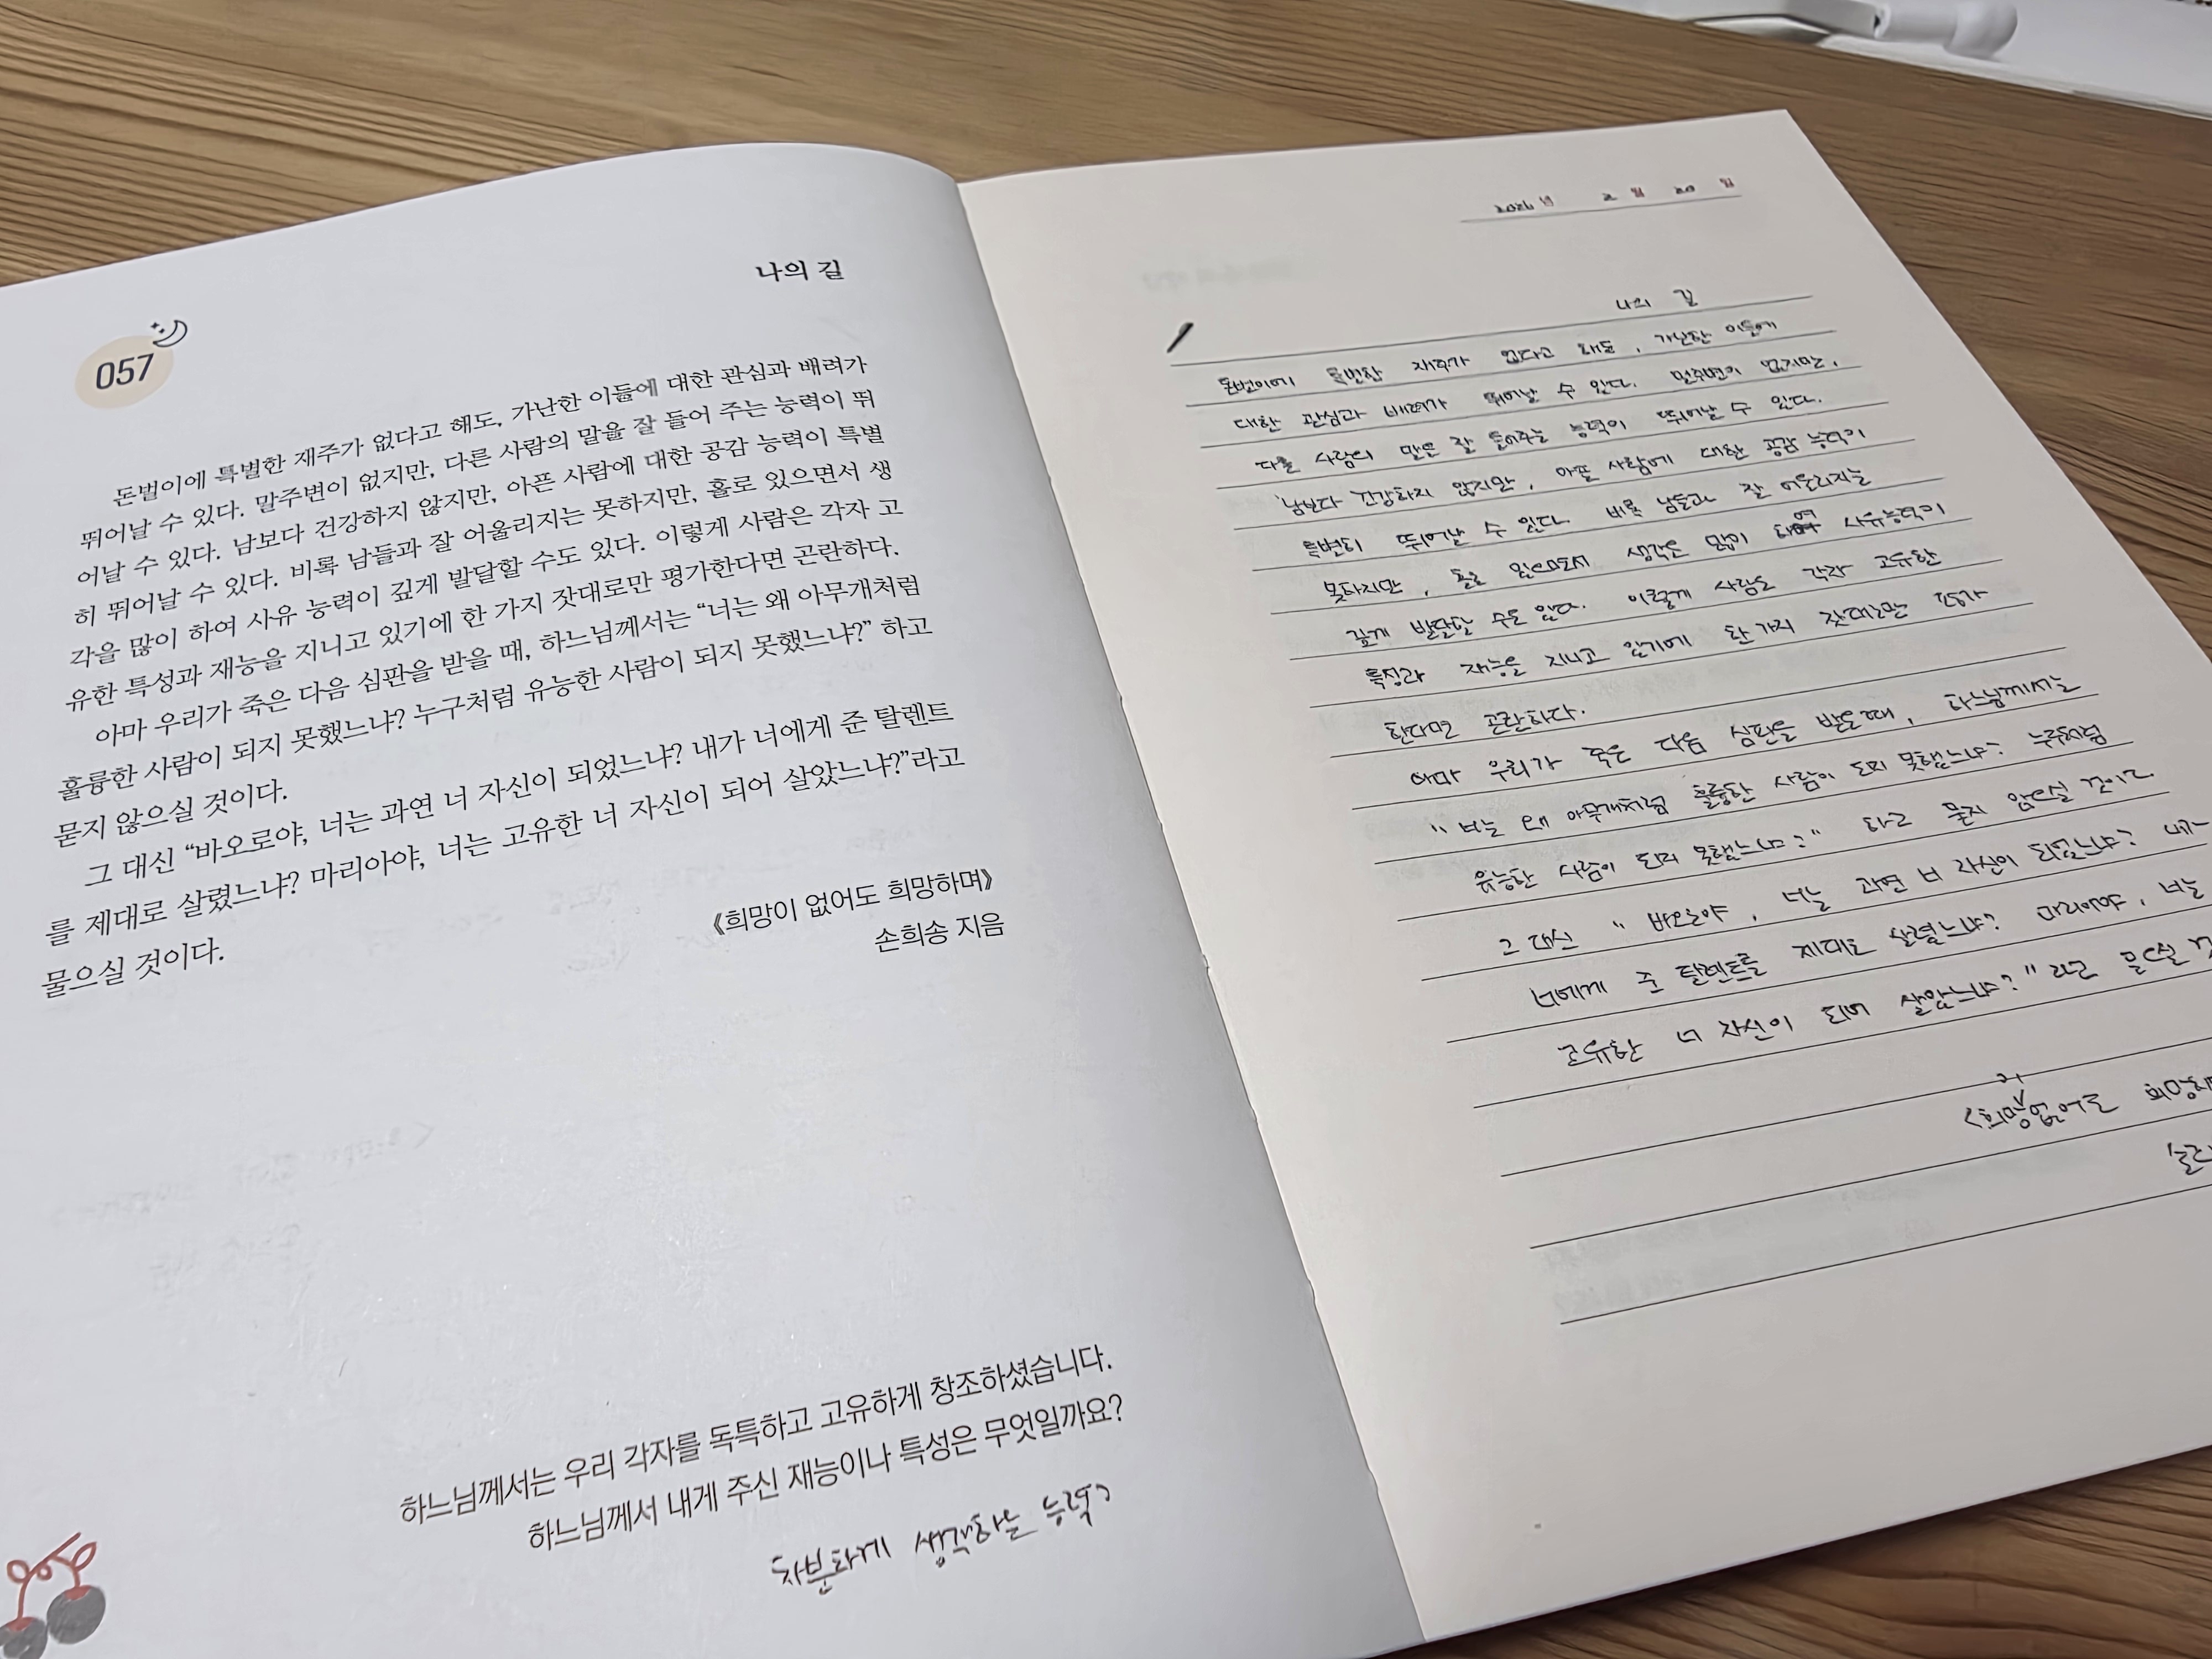 나의 길
057
돈벌이에 특별한 재주가 없다고 해도, 가난한 이들에 대한 관심과 배려가
뛰어날 수 있다. 말주변이 없지만, 다른 사람의 말을 잘 들어 주는 능력이 뛰
어날 수 있다. 남보다 건강하지 않지만, 아픈 사람에 대한 공감 능력이 특별
히 뛰어날 수 있다. 비록 남들과 잘 어울리지는 못하지만, 홀로 있으면서 생
각을 많이 하여 사유 능력이 깊게 발달할 수도 있다. 이렇게 사람은 각자 고
유한 특성과 재능을 지니고 있기에 한 가지 잣대로만 평가한다면 곤란하다.
아마 우리가 죽은 다음 심판을 받을 때, 하느님께서는 “너는 왜 아무개처럼
훌륭한 사람이 되지 못했느냐? 누구처럼 유능한 사람이 되지 못했느냐?” 하고
묻지 않으실 것이다.
그 대신 “바오로야, 너는 과연 너 자신이 되었느냐? 내가 너에게 준 탈렌트
를 제대로 살렸느냐? 마리아야, 너는 고유한 너 자신이 되어 살았느냐?”라고
물으실 것이다.
《희망이 없어도 희망하며》
손희송 지음
하느님께서는 우리 각자를 독특하고 고유하게 창조하셨습니다.
하느님께서 내게 주신 재능이나 특성은 무엇일까요?
차분하게 생각하는 능력?
년 2 월 20 일
나의 길
돈벌이에 특별한 재주가 없다고 해도, 가난한 이들에
대한 관심과 배려가 뛰어날 수 있다. 말주변이 없지만,
다른 사람의 말을 잘 들어주는 능력이 뛰어날 수 있다.
남보다 건강하지 않지만, 아픈 사람에 대한 공감 능력이
특별히 뛰어날 수 있다. 비록 남들과 잘 어울리지는
못하지만, 홀로 있으면서 생각을 많이 하여 사유능력이
깊게 발달할 수도 있다. 이렇게 사람은 각자 고유한
특성과 재능을 지니고 있기에 한 가지 잣대로만 평가
한다면 곤란하다.
아마 우리가 죽은 다음 심판을 받을때, 하느님께서는
“너는 왜 아무개처럼 훌륭한 사람이 되지 못했느냐? 누구처럼
유능한 사람이 되지 못했느냐?" 하고 묻지 않으실 것이다.
그 대신 “바오로야, 너는 과연 너 자신이 되었느냐? 내가
너에게 준 탈렌트를 제대로 살렸느냐? 마리아야, 너는
고유한 너 자신이 되어 살았느냐?"라고 물으실
<희망이 없어도